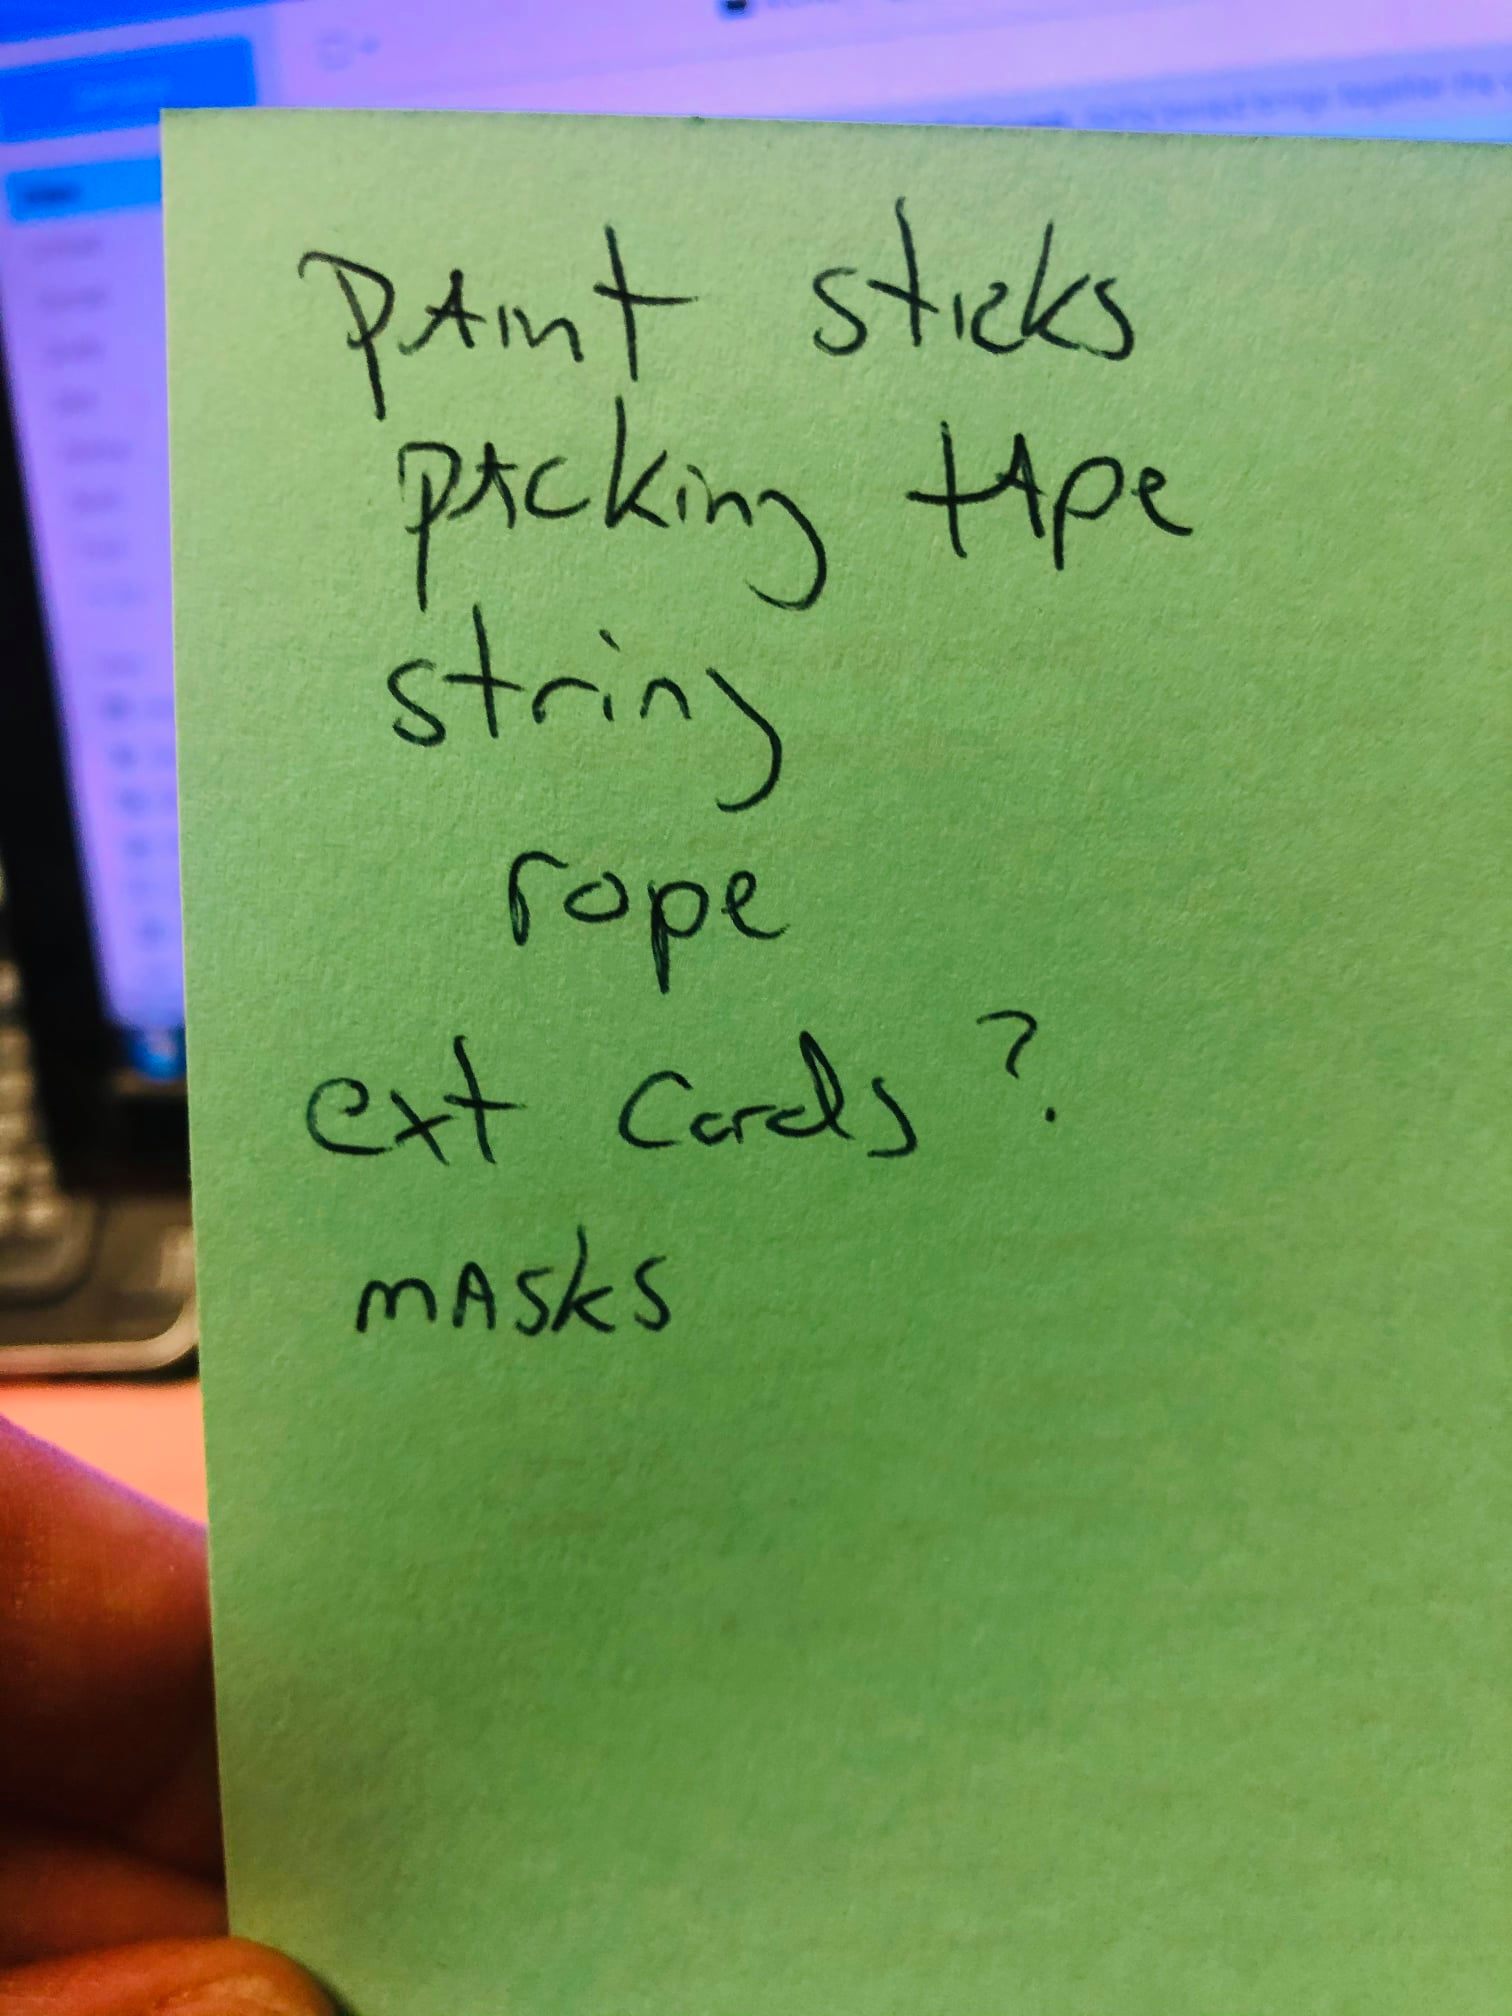 paint sticks
packing tape
string
rope
ext cords ?
masks